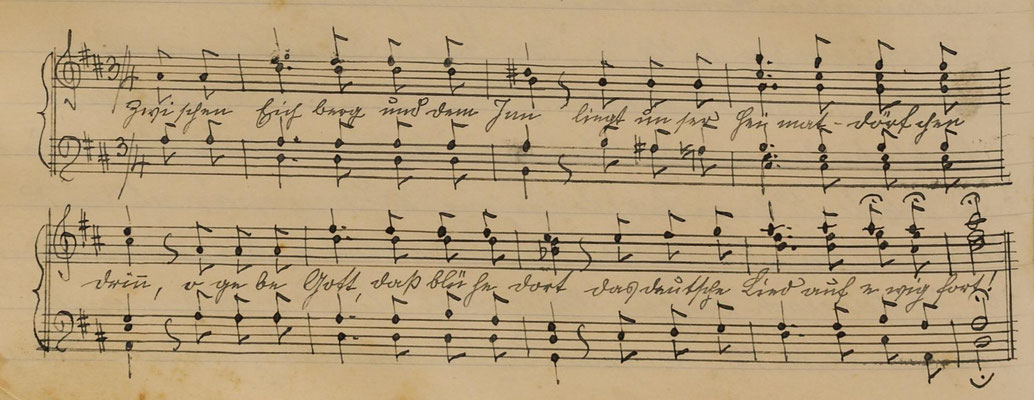 3/4
Zwi schen Eich berg und dem Inn liegt un ser Hei mat- dörf chen
3/4
drin, o ge be Gott, daß blü he dort das deutsche Lied auf e wig fort!